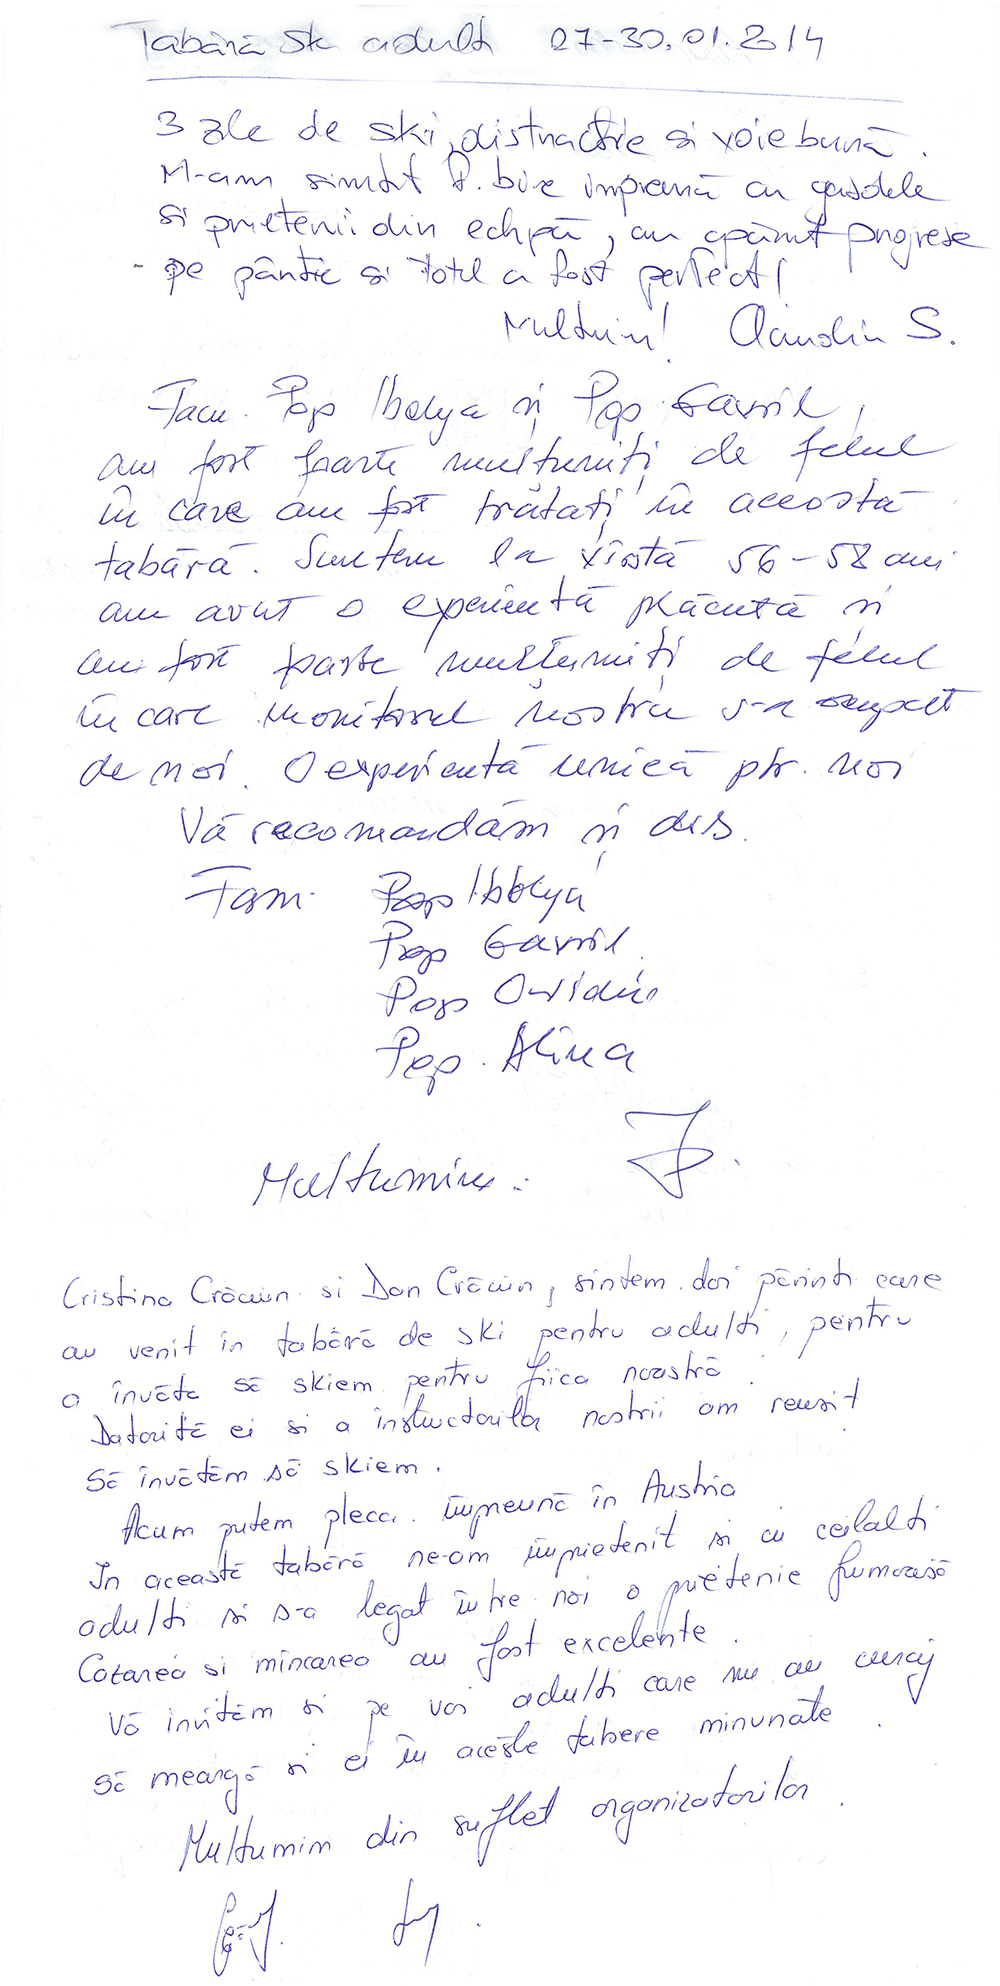 Tabără ski adulti 27-30.01.2014
3 zile de ski, distractie si voie bună.
M-am simtit f. bine impreună cu gazdele
si prietenii din echipă, au apărut progrese
pe pârtie si totul a fost perfect!
Multumim! Claudiu S.
Fam. Pop Ibolya și Pop Gavril,
am fost foarte mulțumiți de felul
în care am fost tratați în această
tabără. Suntem la vîrstă 56-58 ani
am avut o experientă plăcută și
am fost foarte mulțumiți de felul
în care monitorul nostru s-a ocupat
de noi. O experientă unică ptr. noi
Vă recomandăm și dvs.
Fam. Pop Ibolya
Pop Gavril.
Pop Ovidiu
Pop. Alina
Multumim.
Cristina Crăciun si Dan Crăciun, sintem doi părinti care
au venit în tabără de ski pentru adulti, pentru
a învăta să skiem pentru fiica noastră.
Datorită ei si a instuctorilor nostrii am reusit
să învătăm să skiem.
Acum putem pleca împreună în Austria
În această tabără ne-am împrietenit si cu ceilalti
adulti si s-a legat între noi o prietenie frumoasă
Cazarea si mîncarea au fost excelente.
Vă invităm si pe voi adulti care nu au curaj
să meargă si ei în aceste tabere minunate.
Multumim din suflet organizatorilor.